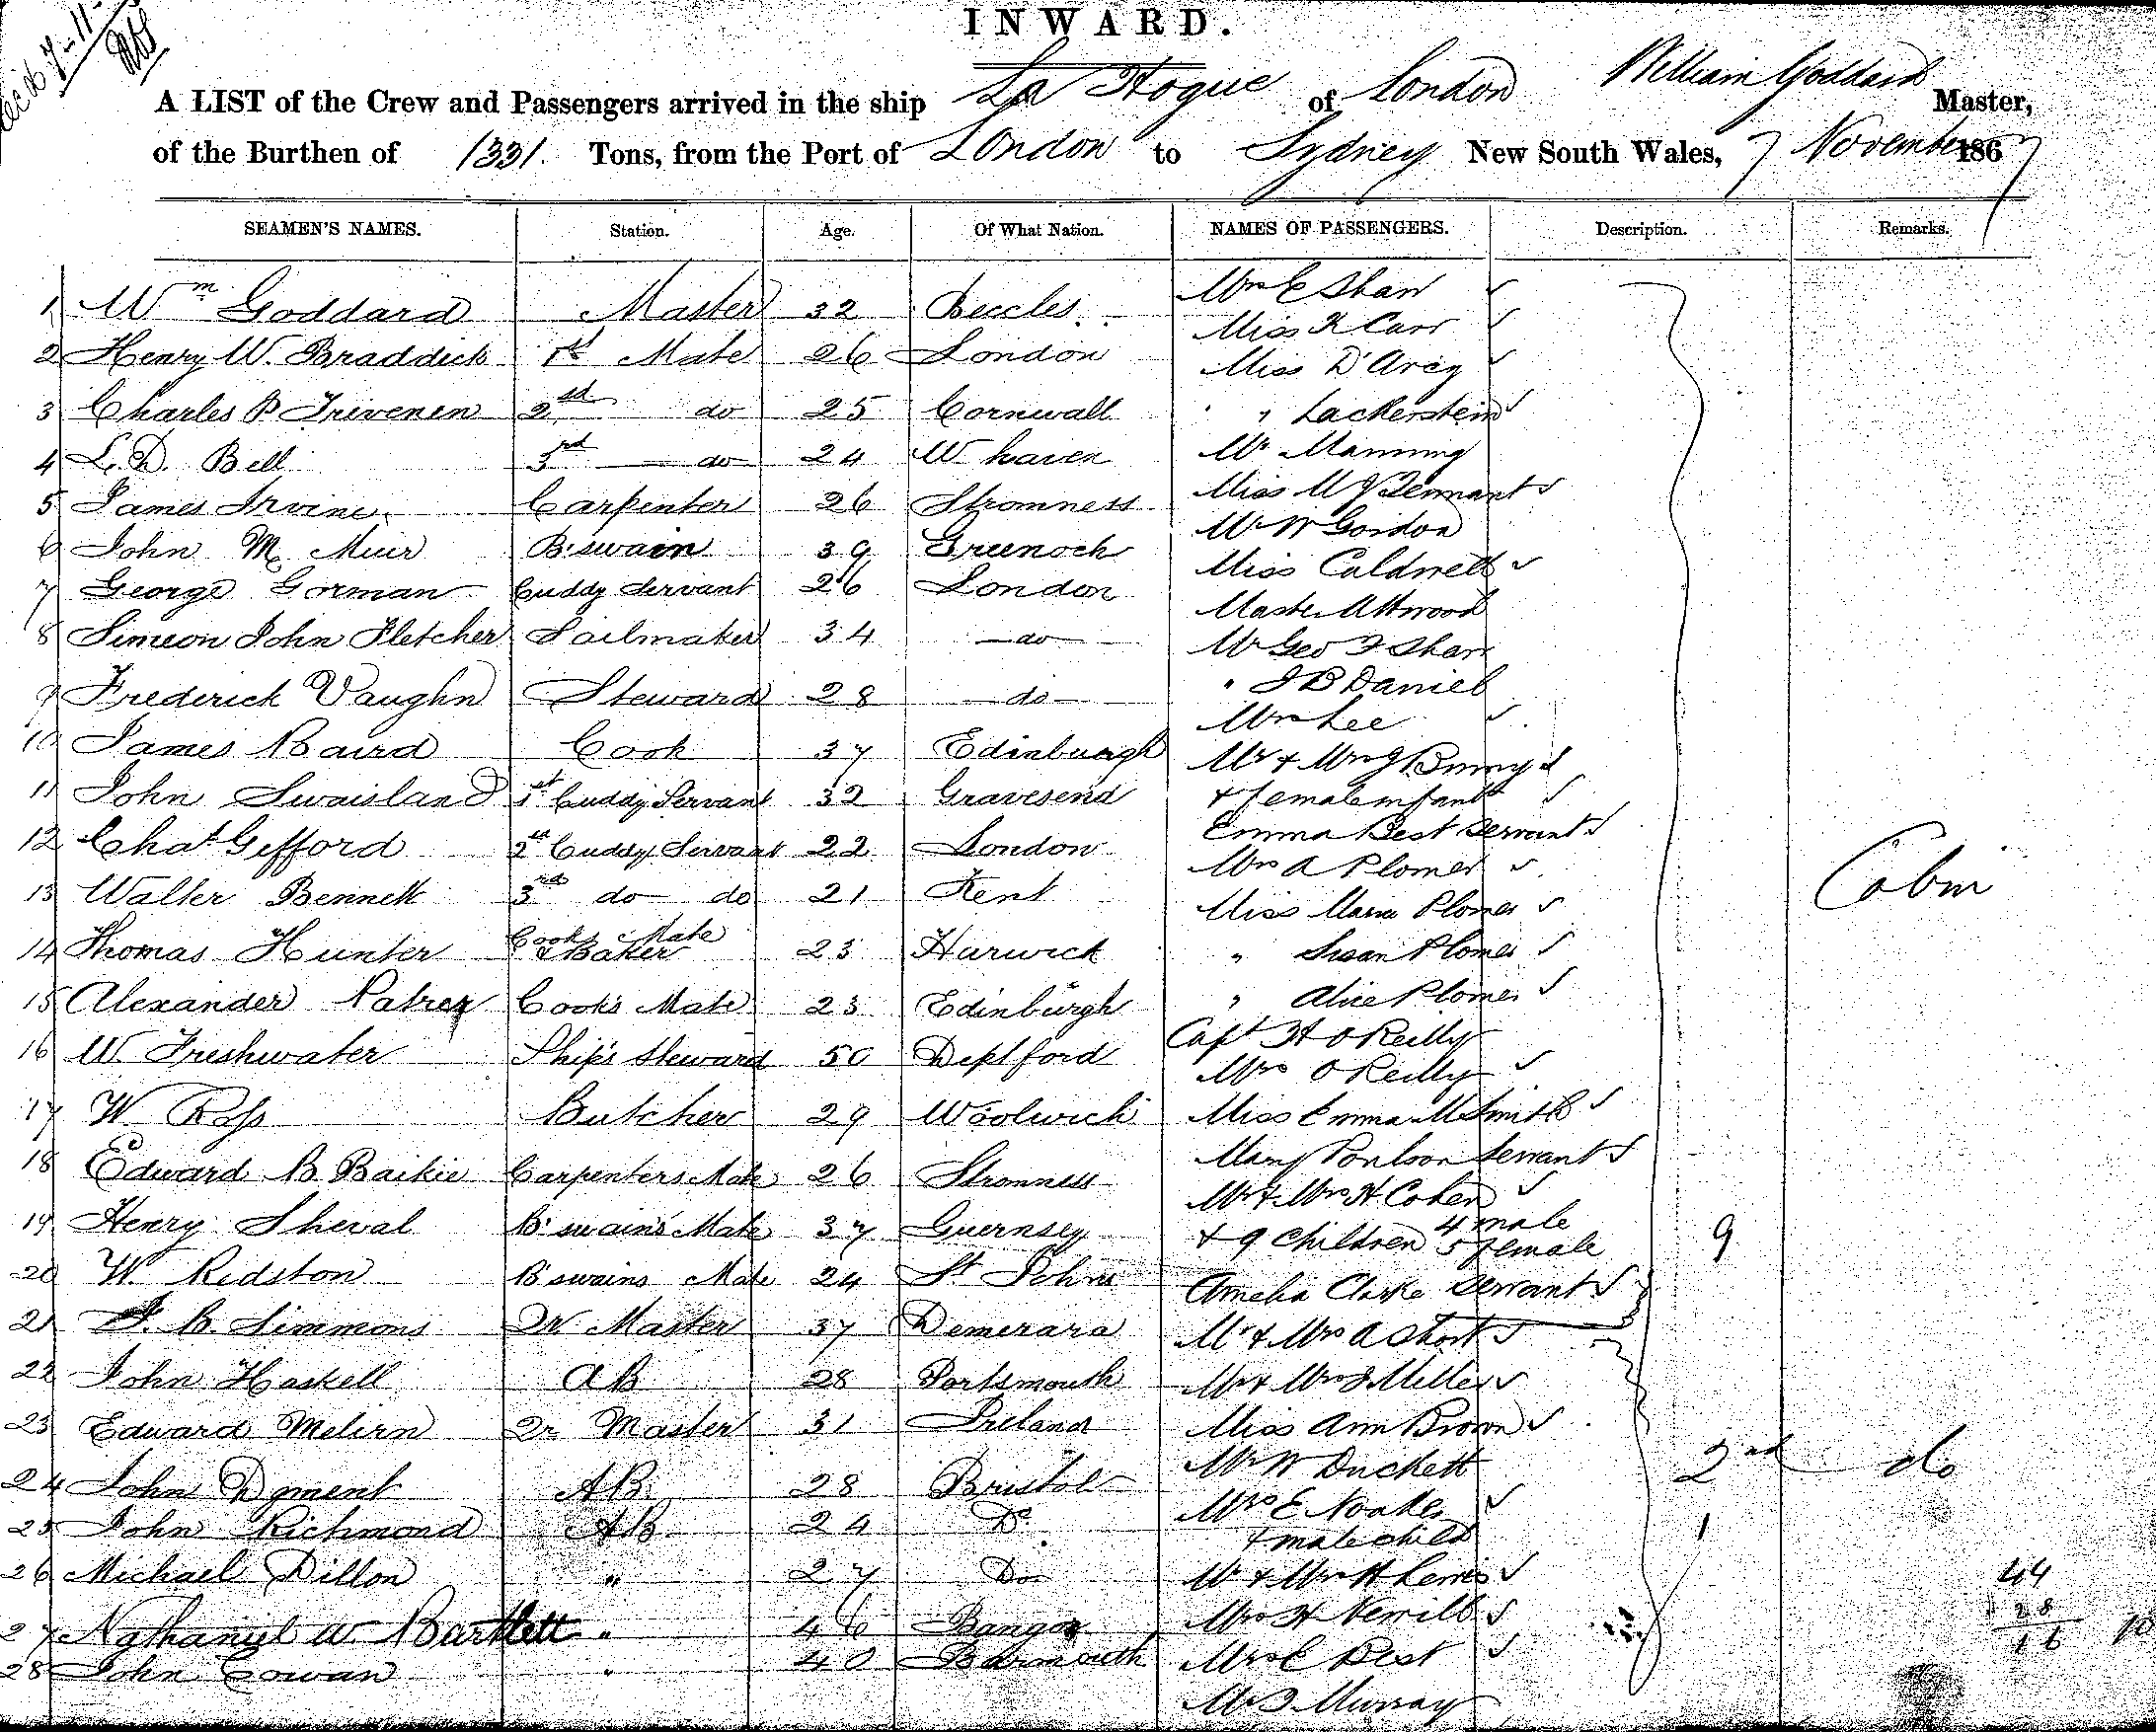 INWARD.
A LIST of the Crew and Passengers arrived in the ship La Hogue of London William Goddard Master,
of the Burthen of 1331 Tons, from the Port of London to Sydney New South Wales, 7 November 1867
SEAMEN'S NAMES. Station. Age. Of What Nation. NAMES OF PASSENGERS. Description. Remarks.
1 Wm Goddard Master 32 Beccles
2 Henry W. Braddick 1st Mate 26 London
3 Charles P Trivenen 2nd do 25 Cornwall
4 L. D. Bell 3rd do 24 W haven
5 James Irvine Carpenter 26 Stromness
6 John Mc Muir B'swain 39 Greenock
7 George Gorman Cuddy Servant 26 London
8 Simeon John Fletcher Sailmaker 34 do
9 Frederick Vaughn Steward 28 do
10 James Baird Cook 37 Edinburgh
11 John Swaisland 1st Cuddy Servant 32 Gravesend
12 Chas Gifford 2nd Cuddy Servant 22 London
13 Walter Bennett 3rd do do 21 Kent
14 Thomas Hunter Cooks Mate & Baker 23 Harwick
15 Alexander Cook's Mate 23 Edinburgh
16 W. Freshwater Ship's Steward 50 Deptford
17 W Ross Butcher 29 Woolwich
18 Edward B Baikie Carpenters Mate 26 Stromness
19 Henry Sheval B'swain's Mate 37 Guernsey
20 W. Ridston B'swains Mate 24 St Johns
21 B. Simmons Qr Master 37 Demerara
22 John Haskell AB 28 Portsmouth
23 Edward Melirn Qr Master 31 Ireland
24 John Dyment AB 28 Bristol
25 John Richmond AB 24 Do
26 Michael Dillon " 27 Do
27 Nathaniel W Bartlett " 46 Bangor
28 John Cowan " 40
Mrs E Shaw
Miss K Carr
Miss D'Arcy
" Lackerstein
Mr Manning
Miss M Tennant
Mr W Gordon
Miss Caldwell
Master Attwood
Mr Geo F Shaw
" J B Daniel
Mrs Lee
Mr & Mrs J Bunny
& female infant
Emma Best Servant
Mrs A Plomer
Miss Maria Plomer
" Susan Plomer
" Alice Plomer
Capt H O Reilly
Mrs O Reilly
Miss Emma M Smith
Mary Poulson Servant
Mr & Mrs H Cohen
& 9 Children 4 male
5 female 9
Amelia Clarke Servant
Cabin
Mr & Mrs A Short
Mr & Mrs J Miller
Miss Ann Brown
Mr W Duckett
2nd do
Mrs E Noakes
& male child 1
Mr & Mrs H Lewis
Mrs H Nerrill
Mrs E Best
Mr J Murray
44
28
16